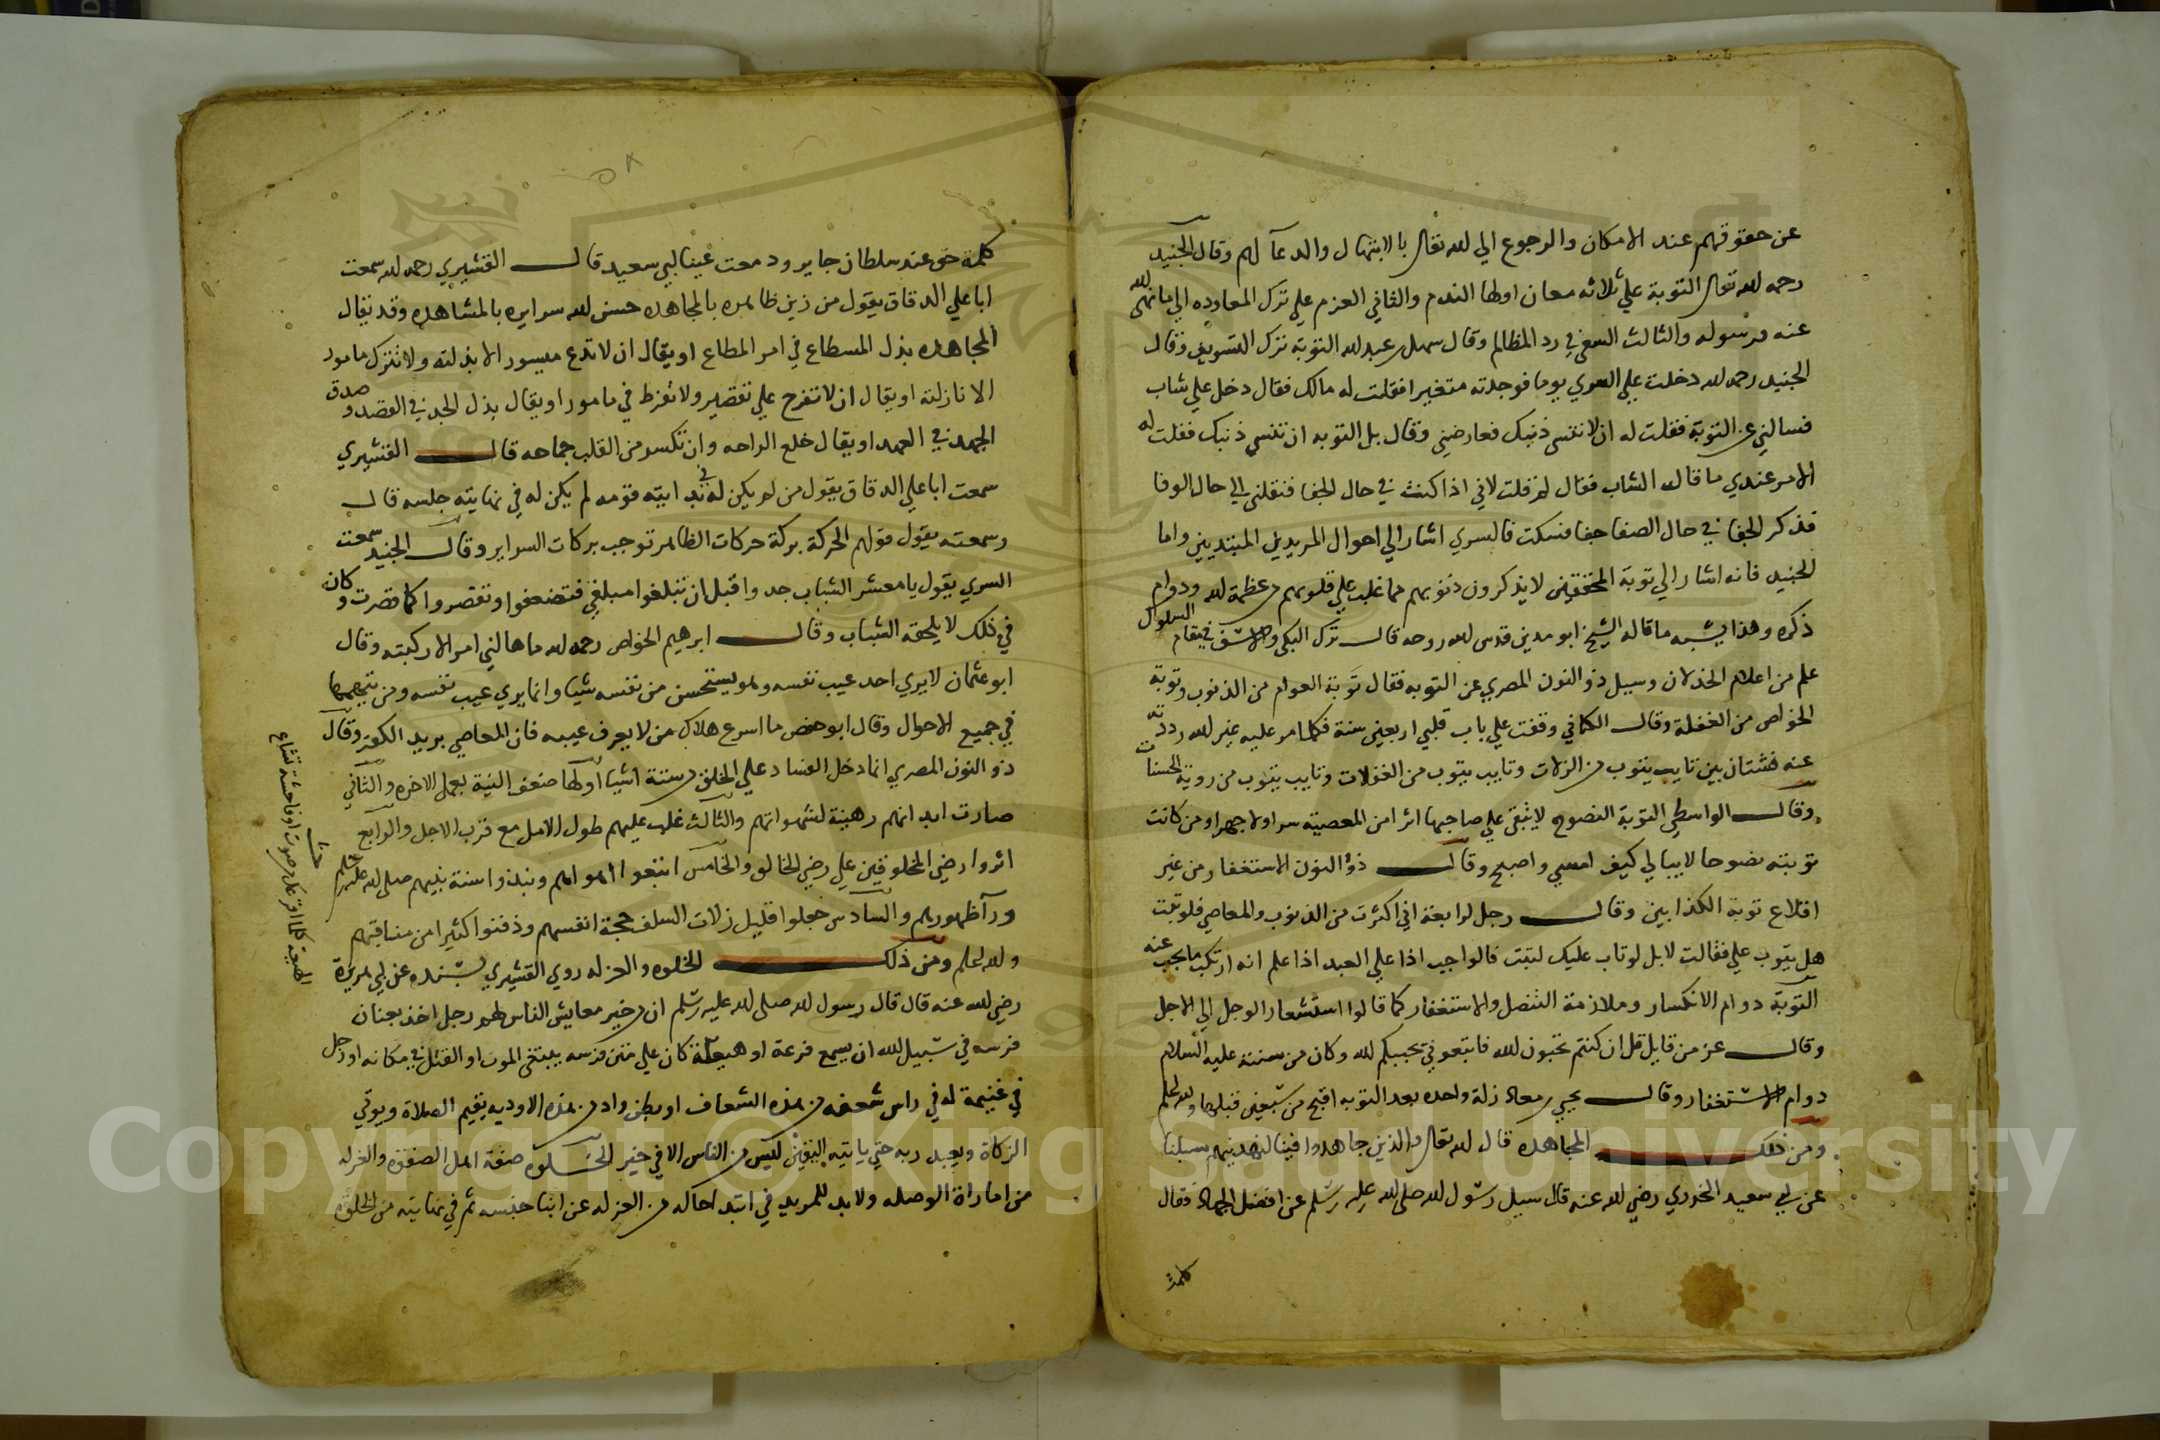 عن حقوقهم عند الامكان والرجوع الي الله تعالى بالابتهال والدعآ لهم وقال الجنيد
رحمه الله تعالى التوبة علي ثلاثه معان اولها الندم والثاني العزم علي ترك المعاوده الي ما نهى الله
عنه ورسوله والثالث السعي في رد المظالم وقال سهل بن عبد الله التوبة ترك التسويف وقال
الجنيد رحمه الله دخلت علي السري يوما فوجدته متغيرا فقلت له مالك فقال دخل علي شاب
فسالني عن التوبة فقلت له ان لا تنسى ذنبك فعارضني وقال بل التوبه ان تنسي ذنبك فقلت له
الامر عندي ما قاله الشاب فقال لم قلت لاني اذا كنت في حال الجفا فنقلني الي حال الوفا
فذكر الجفا في حال الصفا جفا فسكت فالسري اشار الي احوال المريدين المبتديين واما
الجنيد فانه اشار الي توبة المحققين لا يذكرون ذنوبهم مما غلب علي قلوبهم من عظمة الله ودوام
ذكره وهذا يشبه ما قاله الشيخ ابو مدين قدس الله روحه قال ترك البكى والاسف في مقام السلوك
علم من اعلام الخذلان وسيل ذو النون المصري عن التوبه فقال توبة العوام من الذنوب وتوبة
الخواص من الغفلة وقال الكتاني وقفت علي باب قلبي اربعين سنة فكلما مر عليه غير الله رددته
عنه فشتان بين تايب يتوب من الزلات وتايب يتوب من الغفلات وتايب يتوب من روية الحسنات
وقال الواسطي التوبة النصوح لا يبقى علي صاحبها اثرا من المعصية سرا ولا جهرا ومن كانت
توبته نصوحا لا يبالي كيف امسي واصبح وقال ذو النون الاستغفار من غير
اقلاع توبة الكذابين وقال رجل لرابعة اني اكثرت من الذنوب والمعاصي فلو تبت
هل يتوب علي فقالت لا بل لو تاب عليك لتبت فالواجب اذا علي العبد اذا علم انه ارتكب ما يجب عنه
التوبة دوام الانكسار وملازمة التنصل والاستغفار كما قالوا استشعار الوجل الي الاجل
وقال عز من قايل قل ان كنتم تحبون الله فاتبعوني يحببكم الله وكان من سنته عليه السلام
دوام الاستغفار وقال يحيي بن معاذ زلة واحده بعد التوبه اقبح من سبعين قبلها والله اعلم
ومن ذلك المجاهده قال الله تعالى والذين جاهدوا فينا لنهدينهم سبلنا
عن ابي سعيد الخدري رضي الله عنه قال سيل رسول الله صلى الله عليه وسلم عن افضل الجهاد فقال
كلمة
٥٨
كلمة حق عند سلطان جاير ودمعت عينا ابي سعيد قال القشيري رحمه الله سمعت
ابا علي الدقاق يقول من زين ظاهره بالمجاهده حسن الله سرايره بالمشاهده وقد يقال
المجاهده بذل المسطاع في امر المطاع او يقال ان لا تدع ميسور الا بذلته ولا تترك مامور
الا نازلته او يقال ان لا تفرح علي تقصير ولا تفرط في مامور او يقال بذل الجد في القصد وصدق
الجهد في العهد او يقال خلع الراحه وان تكسر من القلب جماحه قال القشيري
سمعت ابا علي الدقاق يقول من لم يكن له في بدايته قومه لم يكن له في نهايته جلسه قال
وسمعته يقول قولهم الحركة بركة حركات الظاهر توجب بركات السراير وقال الجنيد سمعت
السري يقول يا معشر الشباب جدوا قبل ان تبلغوا مبلغي فتضعفوا وتقصروا كما قصرت وكان
في ذلك لا يلحقه الشباب وقال ابرهيم الخواص رحمه الله ما هالني امر الا ركبته وقال
ابو عثمان لا يري احد عيب نفسه وهو يستحسن من نفسه شيا وانما يري عيب نفسه من يتهمها
في جميع الاحوال وقال ابو حفص ما اسرع هلاك من لا يعرف عيبه فان المعاصي بريد الكفر وقال
ذو النون المصري انما دخل الفساد علي الخلق من ستة اشيا اولها ضعف النية بعمل الاخره والثاني
صارت ابدانهم رهينة لشهواتهم والثالث غلب عليهم طول الامل مع قرب الاجل والرابع
اثروا رضي المخلوقين علي رضي الخالق والخامس اتبعوا اهواهم ونبذوا سنة نبيهم صلى الله عليه وسلم
ورآ ظهورهم والسادس جعلوا قليل زلات السلف حجة انفسهم ودفنوا كثيرا من مناقبهم
والله اعلم ومن ذلك الخلوه والعزله روي القشيري بسنده عن ابي هريرة
رضي الله عنه قال قال رسول الله صلى الله عليه وسلم ان من خير معايش الناس لهم رجل اخذ بعنان
فرسه في سبيل الله ان يسمع فزعة او هيعة كان علي متن فرسه يبتغى الموت او القتل في مكانه او رجل
في غنيمة له في راس شعفه من هذه الشعاف او بطن واد من هذه الاوديه يقيم الصلاة ويوتي
الزكاة ويعبد ربه حتي ياتيه اليقين ليس من الناس الا في خير الخلوه صفة اهل الصفوه والعزله
من امارات الوصله ولا بد للمريد في ابتدا حاله من العزله عن ابنا جنسه ثم في نهايته من الخلوه
الهيعة كلما افزعك من صوت او فاحشة تشاع